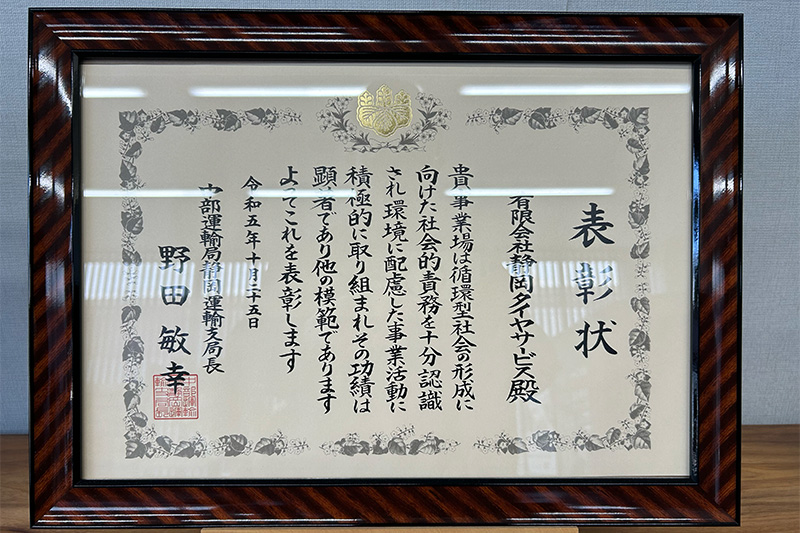 表彰状
有限会社静岡ダイヤサービス殿
貴事業場は循環型社会の形成に
向けた社会的責務を十分認識
され環境に配慮した事業活動に
積極的に取り組まれその功績は
顕著であり他の模範であります
よってここれを表彰します
令和五年十月二十五日
中部運輸局静岡運輸支局長
野田敏幸